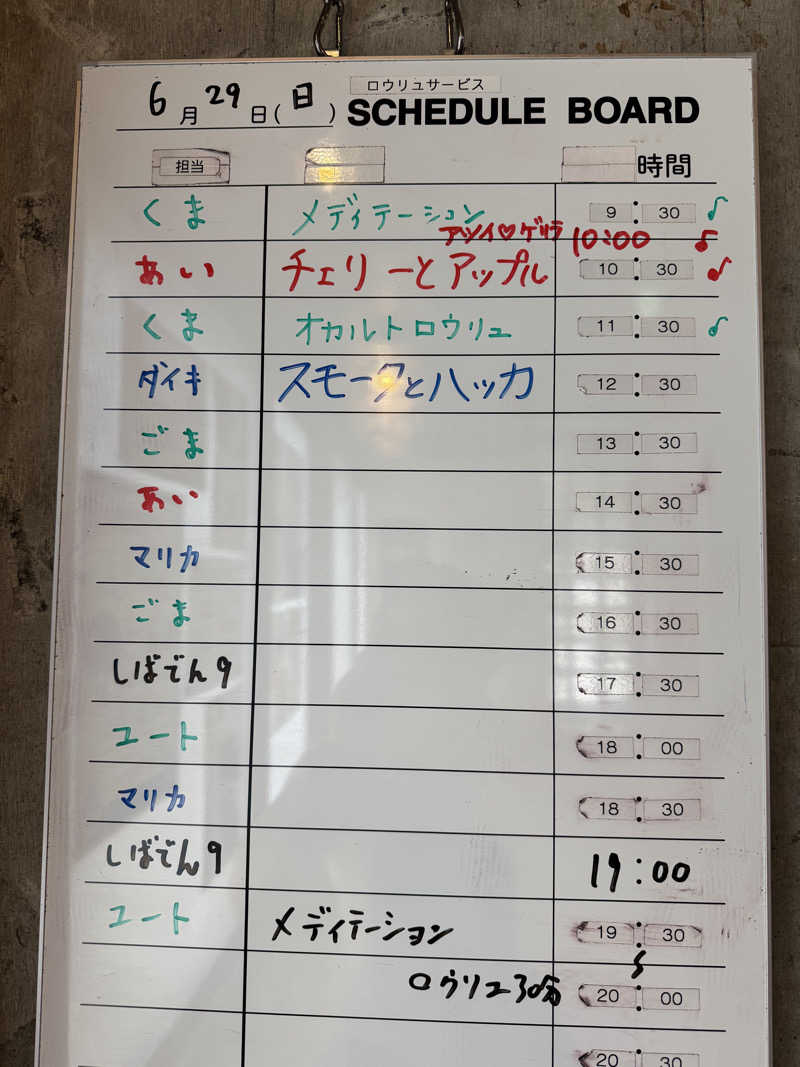 ロウリュサービス
6月29日(日) SCHEDULE BOARD
担当 時間
くま メディテーション 9:30 ♪
アツイ♡ゲリラ 10:00 ♪
あい チェリーとアップル 10:30 ♪
くま オカルトロウリュ 11:30 ♪
ダイキ スモークとハッカ 12:30
ごま 13:30
あい 14:30
マリカ 15:30
ごま 16:30
しばでん9 17:30
ユート 18:00
マリカ 18:30
しばでん9 19:00
ユート メディテーション 19:30
ロウリュ30分 20:00
20:30